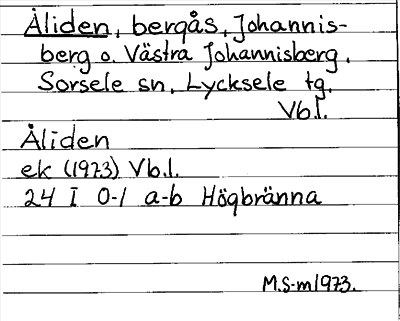 Åliden, bergås, Johannis-
berg o. Västra Johannisberg,
Sorsele sn, Lycksele tg,
Vb.l.
Åliden
ek (1973) Vb.l.
24 I 0-1 a-b Högbränna
M.S-m 1973.